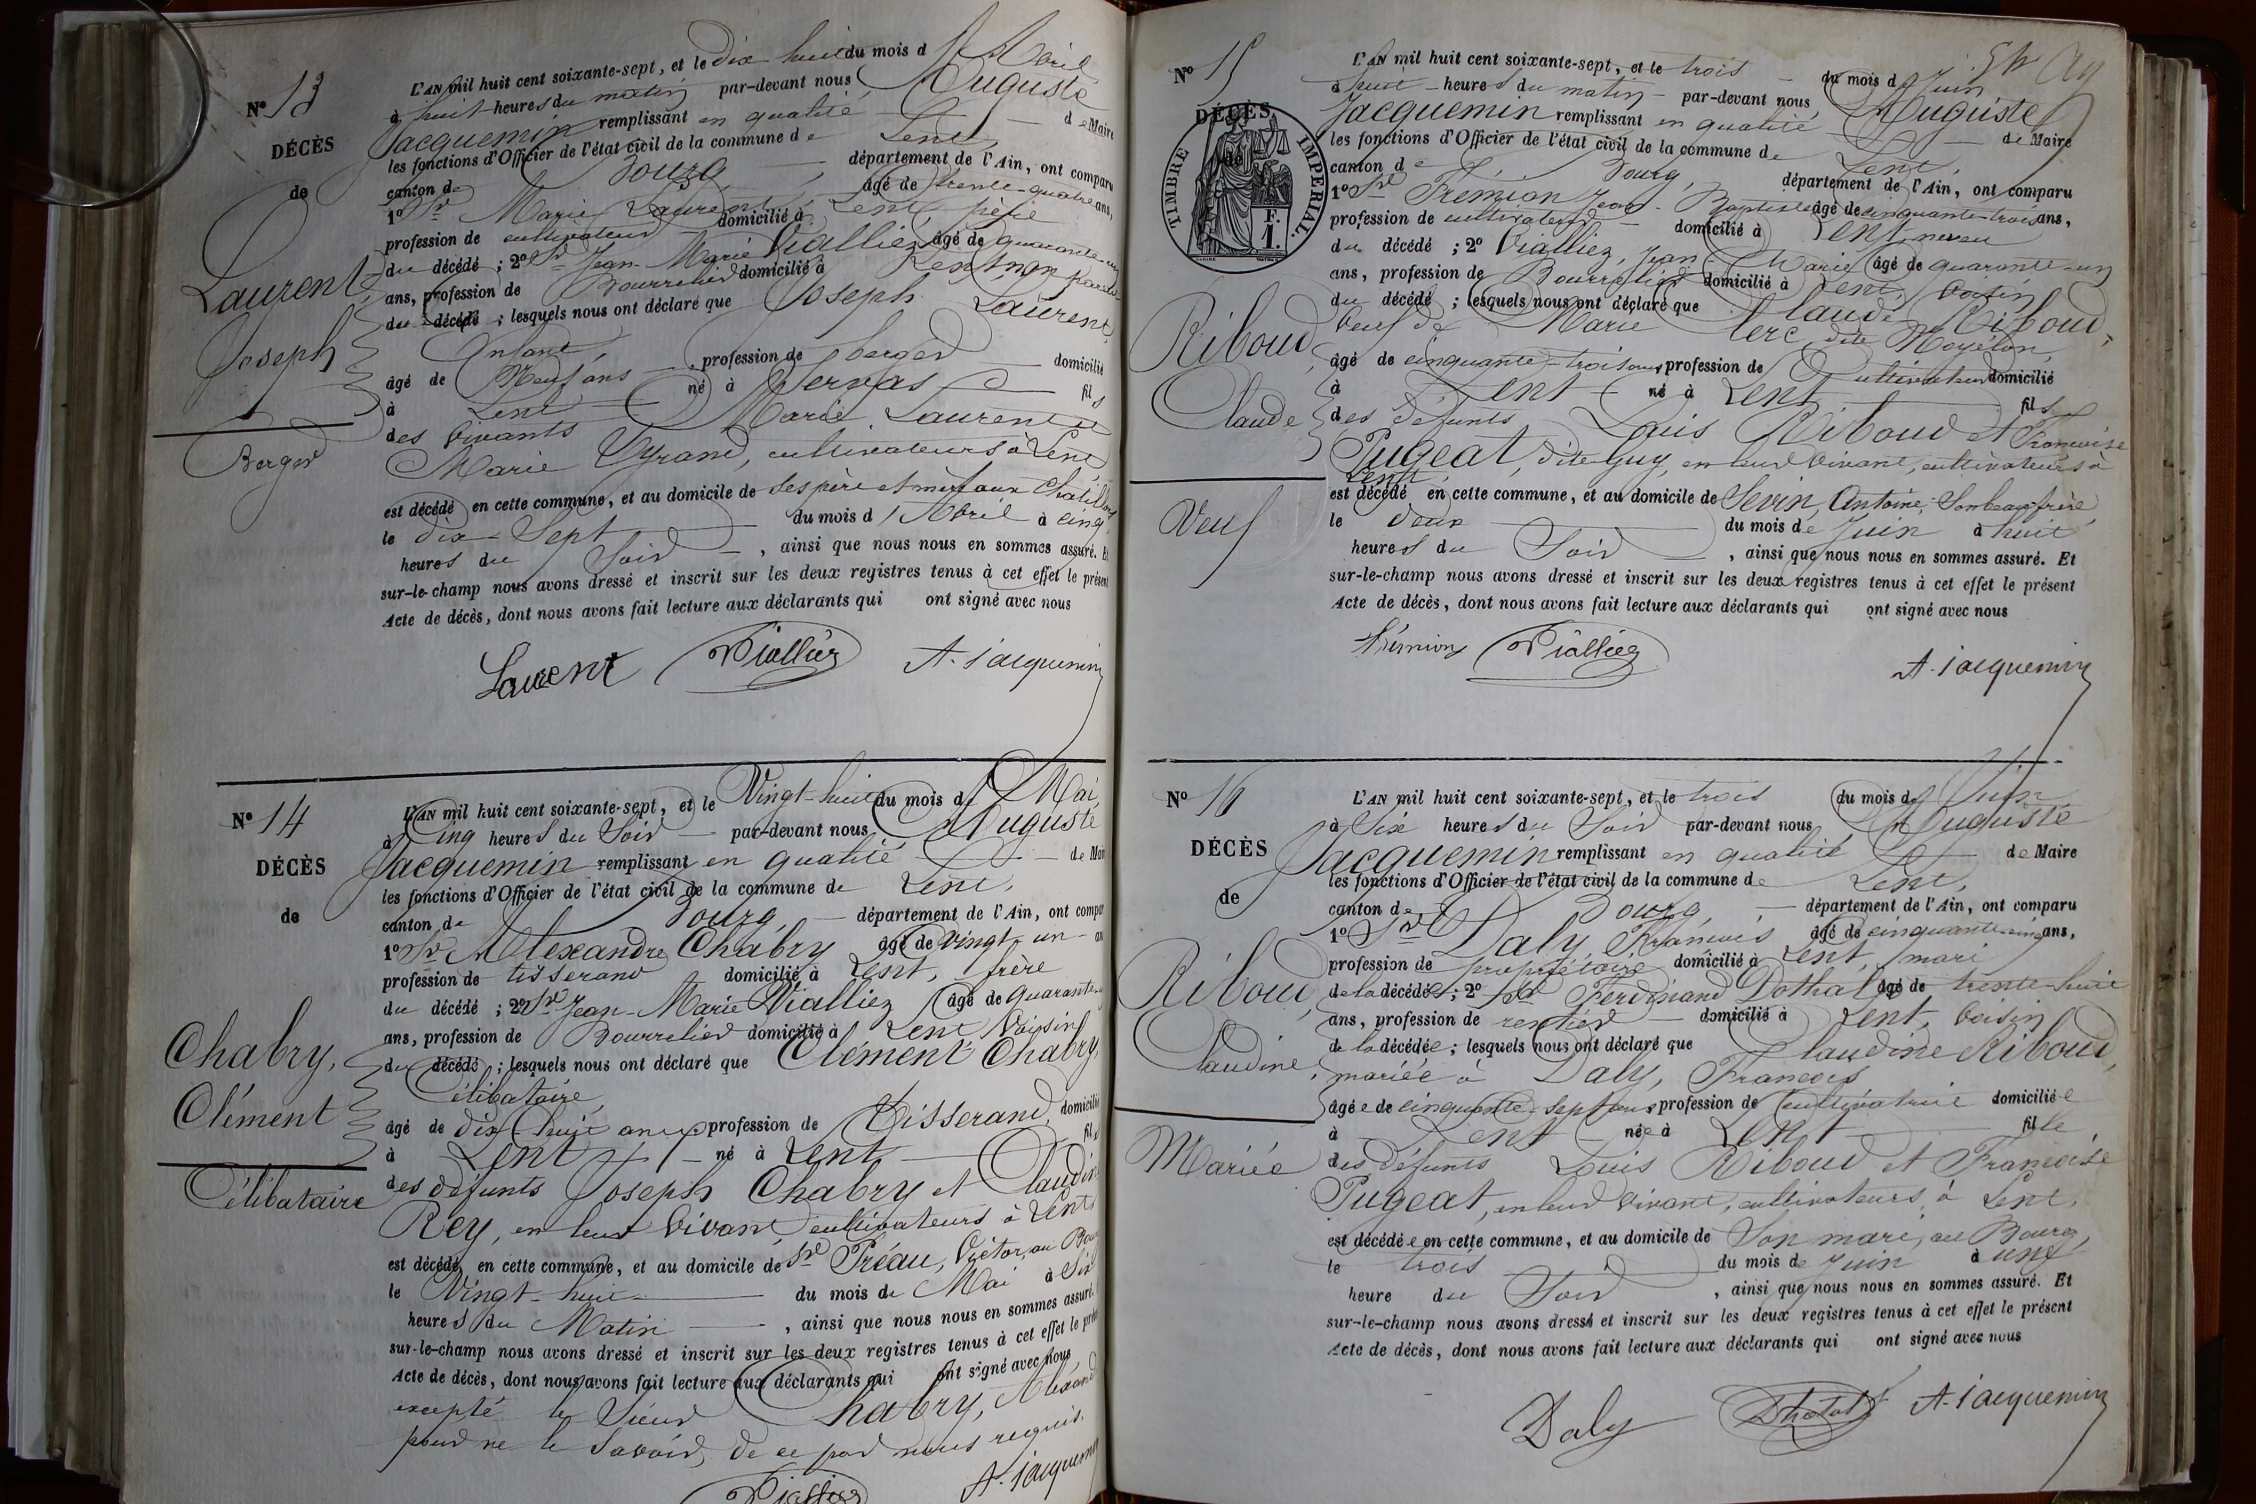 N° 13
DÉCÈS
de
Laurent,
Joseph
Berger
L'AN mil huit cent soixante-sept, et le dix huit du mois d'Avril
à huit heures du matin par-devant nous Auguste
Jacquemin remplissant en qualité de Maire
les fonctions d'Officier de l'état civil de la commune de Lent,
canton de Bourg, département de l'Ain, ont comparu
1° Sr Marie Laurent âgé de trente-quatre ans,
profession de cultivateur domicilié à Lent, père
du décédé ; 2° Sr Jean-Marie Vialliez âgé de quarante-un
ans, profession de Bourrelier domicilié à Lent, non parent
du décédé ; lesquels nous ont déclaré que Joseph Laurent,
Enfant,
âgé de Neuf ans profession de berger domicilié
à Lent né à Servas fils
des vivants Marie Laurent et
Marie Vyrand, cultivateurs à Lent,
est décédé en cette commune, et au domicile de ses père et mère aux Chatillons
le dix-Sept du mois d'Avril à cinq
heures du Soir, ainsi que nous nous en sommes assuré. Et
sur-le-champ nous avons dressé et inscrit sur les deux registres tenus à cet effet le présent
Acte de décès, dont nous avons fait lecture aux déclarants qui ont signé avec nous
Laurent Vialliez A. Jacquemin
N° 14
DÉCÈS
de
Chabry,
Clément
Célibataire
L'AN mil huit cent soixante-sept, et le Vingt-huit du mois de Mai,
à Cinq heures du Soir par-devant nous Auguste
Jacquemin remplissant en qualité de Maire
les fonctions d'Officier de l'état civil de la commune de Lent,
canton de Bourg, département de l'Ain, ont comparu
1° Sr Alexandre Chabry âgé de vingt-un ans
profession de tisserand domicilié à Lent, frère
du décédé ; 2° Sr Jean-Marie Vialliez âgé de quarante-un
ans, profession de Bourrelier domicilié à Lent Voisin
du décédé ; lesquels nous ont déclaré que Clément Chabry,
Célibataire,
âgé de dix-huit ans profession de Tisserand, domicilié
à Lent né à Lent fils
des défunts Joseph Chabry et Claudine
Rey, en leur vivant cultivateurs à Lent
est décédé en cette commune, et au domicile de Sr Préau, Victor, au Bourg
le Vingt-huit du mois de Mai à Six
heures du Matin, ainsi que nous nous en sommes assuré.
sur-le-champ nous avons dressé et inscrit sur les deux registres tenus à cet effet le présent
Acte de décès, dont nous avons fait lecture aux déclarants qui ont signé avec nous
excepté le Sieur Chabry, Alexandre
pour ne le Savoir, de ce par nous requis.
Vialliez A. Jacquemin
N° 15
DÉCÈS
de
TIMBRE IMPÉRIAL.
F.
1.
Riboud,
Claude
Veuf
L'AN mil huit cent soixante-sept, et le trois du mois de Juin
à huit heures du matin par-devant nous Auguste
Jacquemin remplissant en qualité de Maire
les fonctions d'Officier de l'état civil de la commune de Lent,
canton de Bourg, département de l'Ain, ont comparu
1° Sr Frémion Jean-Baptiste âgé de cinquante-trois ans,
profession de cultivateur domicilié à Lent, neveu
du décédé ; 2° Vialliez, Jean-Marie âgé de quarante-un
ans, profession de Bourrelier domicilié à Lent, voisin
du décédé ; lesquels nous ont déclaré que Claude Riboud,
Veuf de Marie Clerc, dite Moyélon,
âgé de cinquante-trois ans profession de Cultivateur domicilié
à Lent né à Lent fils
des défunts Louis Riboud et Françoise
Pugeat, dite Guy, en leur vivant, cultivateurs à
Lent,
est décédé en cette commune, et au domicile de Sevin, Antoine, Son beau-frère,
le deux du mois de Juin à huit
heures du Soir, ainsi que nous nous en sommes assuré. Et
sur-le-champ nous avons dressé et inscrit sur les deux registres tenus à cet effet le présent
Acte de décès, dont nous avons fait lecture aux déclarants qui ont signé avec nous
Frémion Vialliez A. Jacquemin
N° 16
DÉCÈS
de
Riboud,
Claudine,
Mariée
L'AN mil huit cent soixante-sept, et le trois du mois de Juin
à Six heures du Soir par-devant nous Auguste
Jacquemin remplissant en qualité de Maire
les fonctions d'Officier de l'état civil de la commune de Lent,
canton de Bourg, département de l'Ain, ont comparu
1° Sr Daly, François âgé de cinquante-cinq ans,
profession de propriétaire domicilié à Lent, mari
de la décédée ; 2° Sr Ferdinand Dothal âgé de trente-huit
ans, profession de rentier domicilié à Lent, voisin
de la décédée ; lesquels nous ont déclaré que Claudine Riboud,
mariée à Daly, François
âgée de cinquante-sept ans profession de cultivatrice domiciliée
à Lent née à Lent fille
des défunts Louis Riboud et Françoise
Pugeat, en leur vivant, cultivateurs à Lent,
est décédée en cette commune, et au domicile de Son mari, au Bourg,
le trois du mois de Juin à une
heure du Soir, ainsi que nous nous en sommes assuré. Et
sur-le-champ nous avons dressé et inscrit sur les deux registres tenus à cet effet le présent
Acte de décès, dont nous avons fait lecture aux déclarants qui ont signé avec nous
Daly Dhotal A. Jacquemin